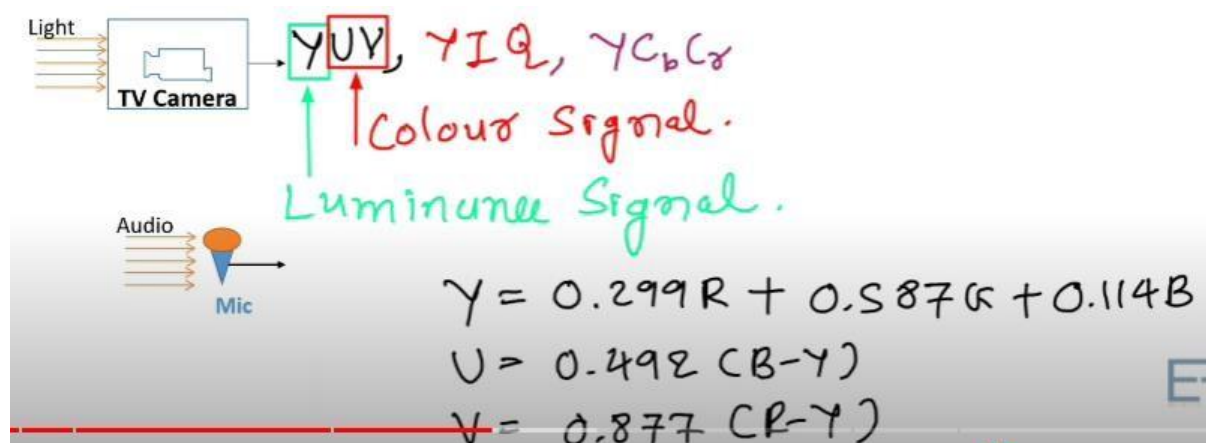 Light
YUV, YIQ, YCbCr
TV Camera
Colour Signal.
Luminance Signal.
Audio
Mic
Y = 0.299R + 0.587G + 0.114B
U = 0.492 (B-Y)
E-
V = 0.877 (R-Y)